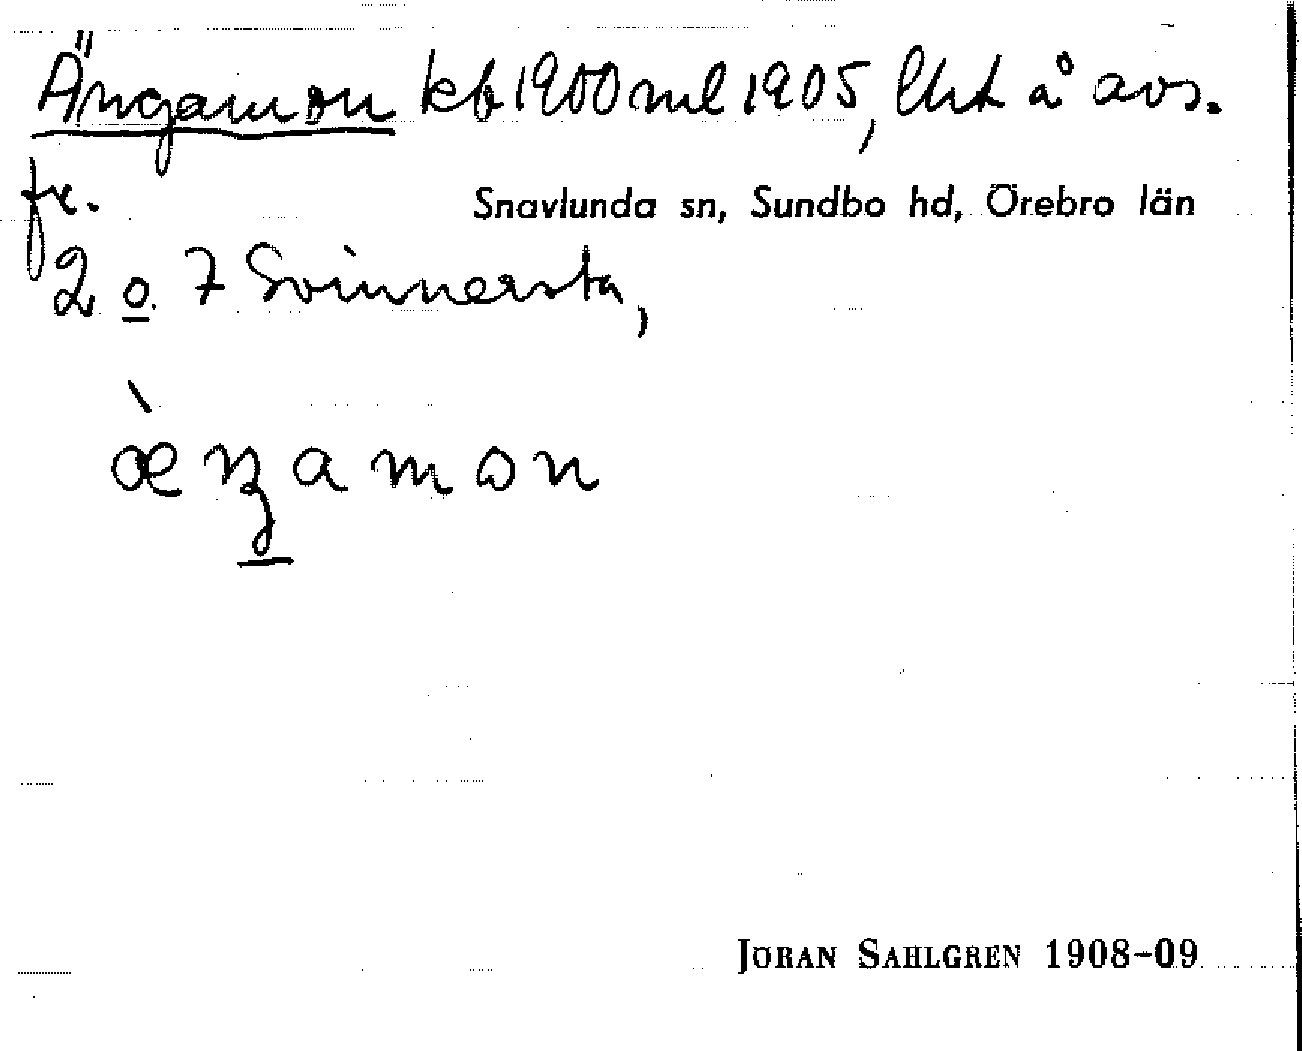 Ängamon kb 1900 ml 1905, lht å avs.
fr.
Snavlunda sn, Sundbo hd, Örebro län
2 o. 7 Svinnersta,
æŋamon
JÖRAN SAHLGREN 1908-09